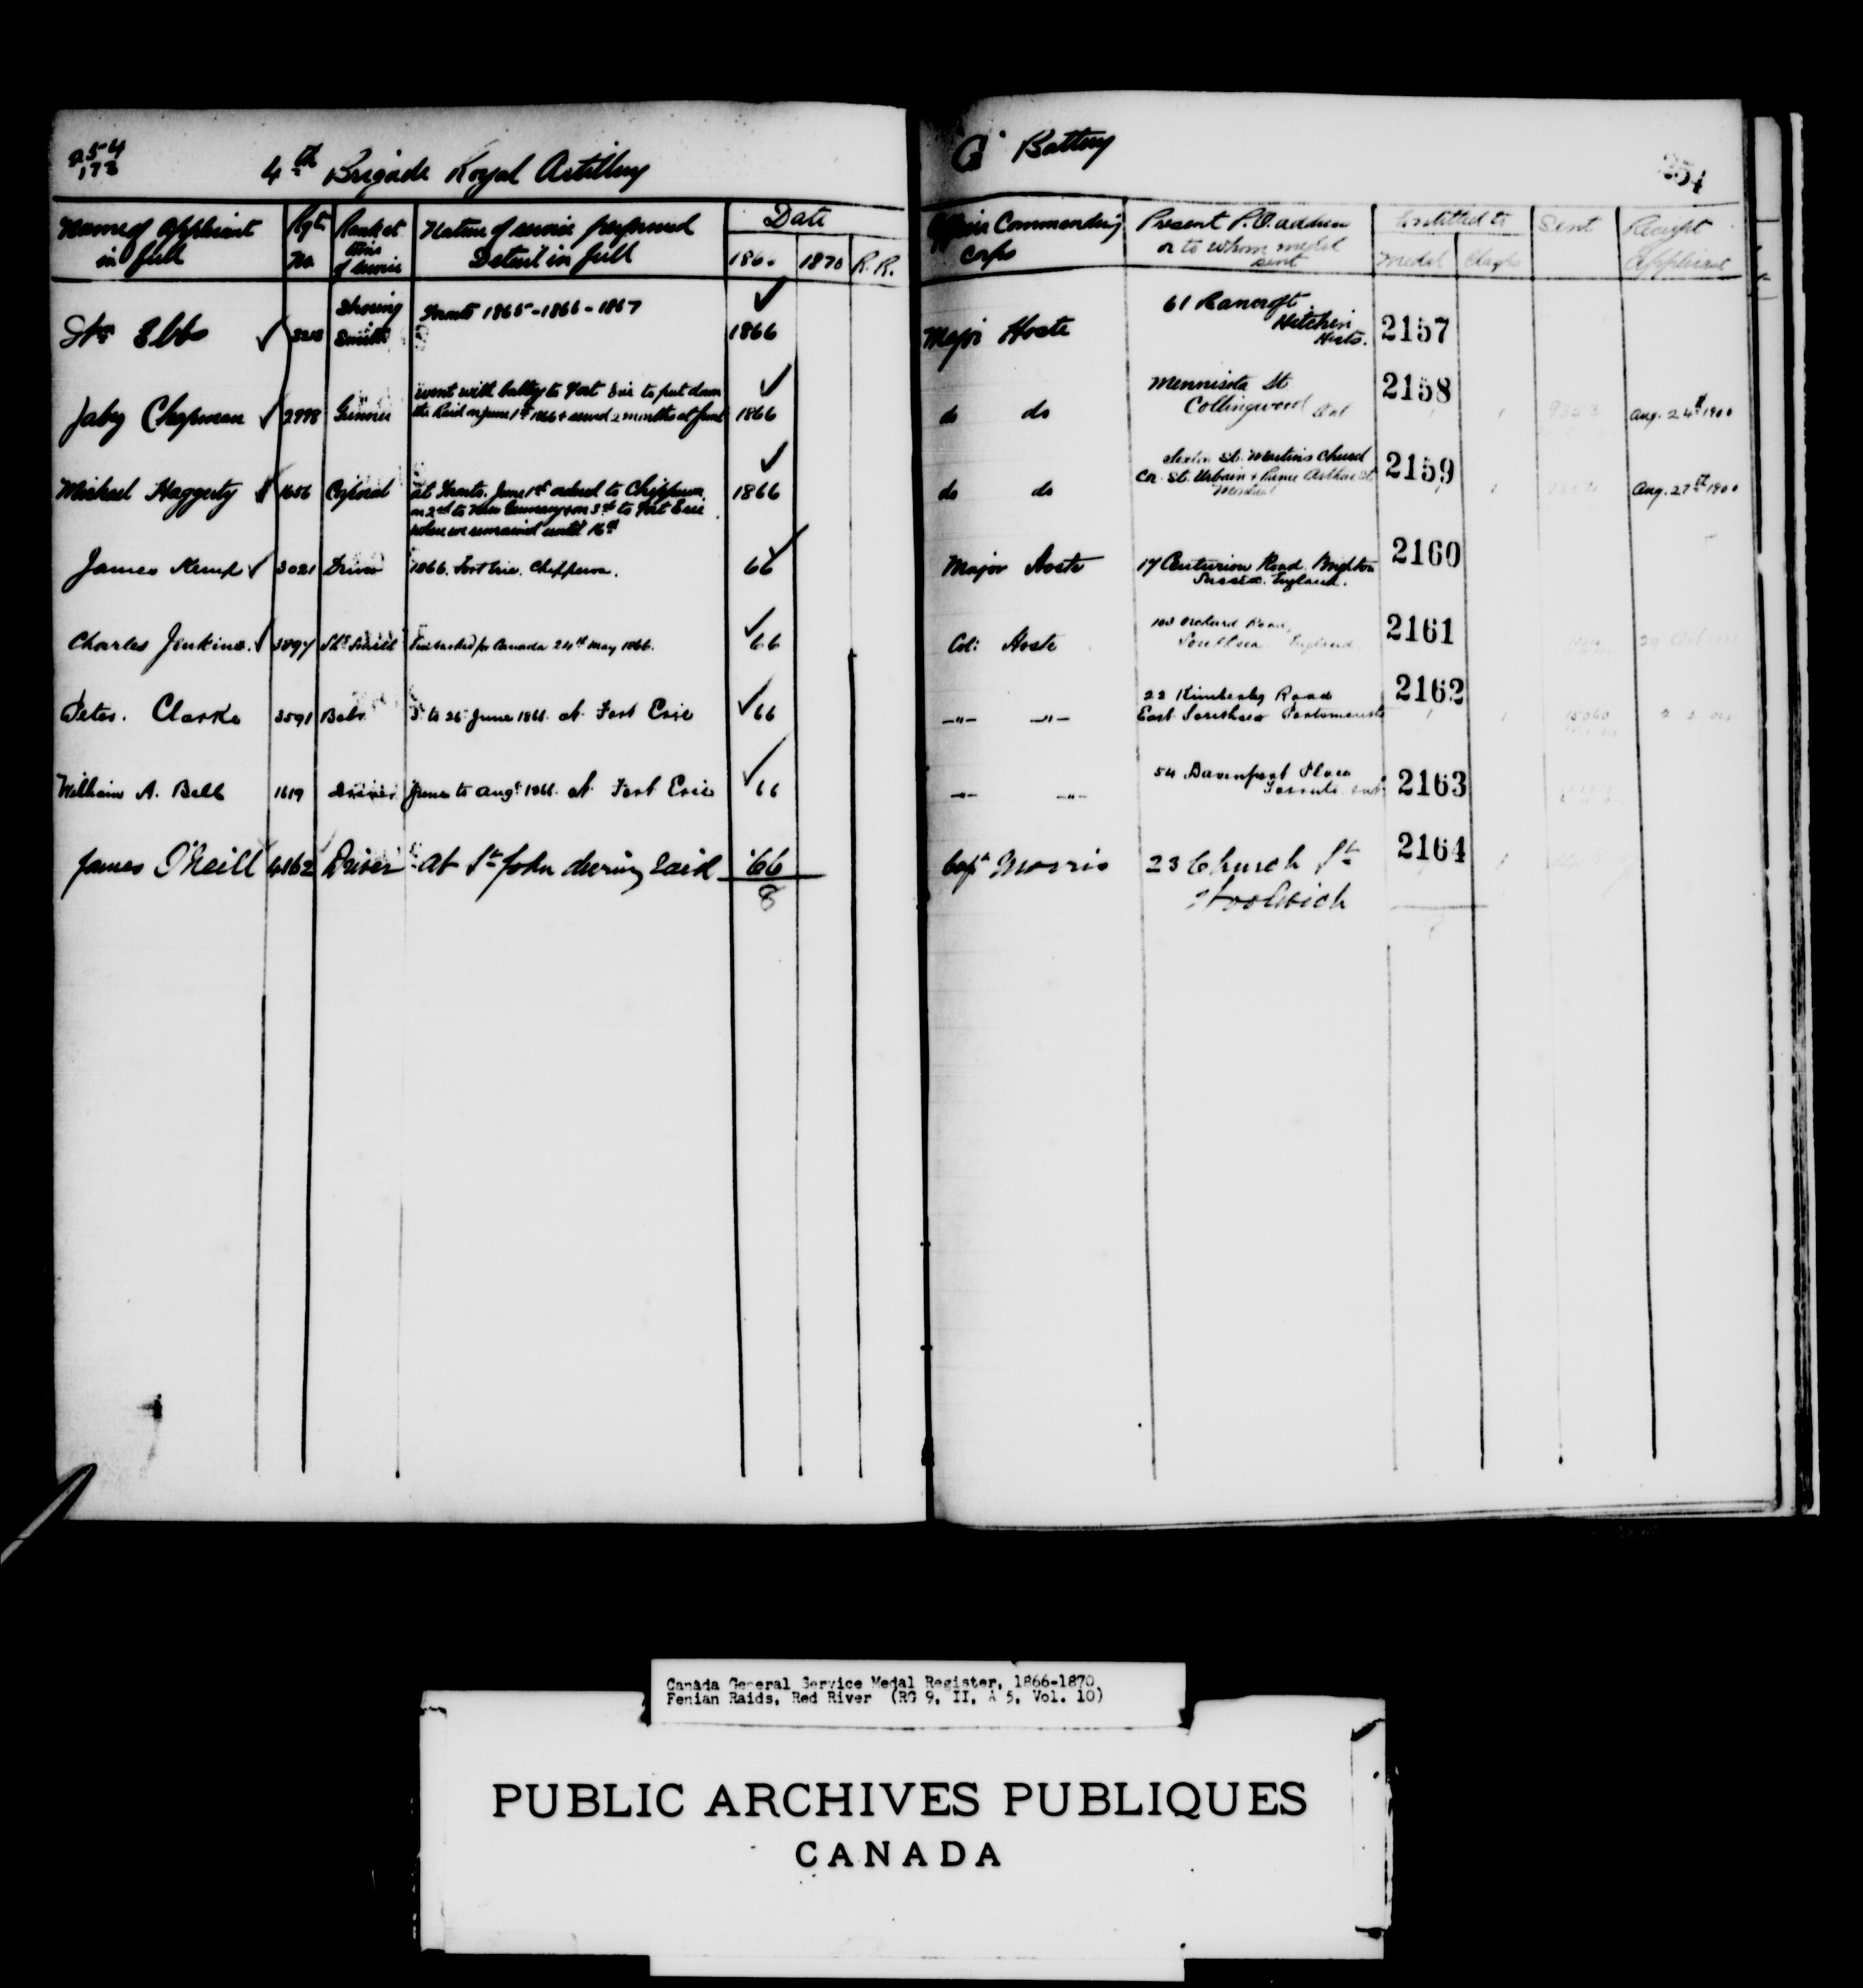 254
173
4th Brigade Royal Artillery
Name of Applicant in full
Rgtl No.
Rank at time of service
Nature of service performed
Detail in full
Date
1866 1870 R.R.
Ebbs
Shoeing Smith
Toronto 1865-1866-1867
1866
Jabez Chapman 2998 Gunner
went with battery to Fort Erie to put down
the Raid on June 1st 1866 & served 2 months at front
1866
Michael Haggerty 1656 Corporal
at Toronto. June 1st ordered to Chippewa
on 2nd to New Germany & on 3rd to Fort Erie
where we remained until 16th
1866
James Kemp 3021 Driver 1866. Fort Erie. Chippewa. 66
Charles Jenkins. Embarked for Canada 24th May 1866. 66
Peter. Clarke 3591 Bobr 3 to 26 June 1866. at Fort Erie 66
William A. Bell 1619 Driver June to Augt 1866. at Fort Erie 66
James O'Neill 4162 Driver at St John during raid '66
8
G Battery
254
Officer Commanding Corps
Present P.O. address
or to whom medal sent
Entitled to
Medal Clasp
Sent
Receipt Applicant
Major Hoste
61 Bancroft
Hitchin
Herts.
2157
do do
Minnisota St
Collingwood Ont
2158
9353
Aug. 24th 1900
do do
Sexton St. Martins Church
Cor. St. Urbain & Prince Arthur St
Montreal
2159
Aug. 27th 1900
Major Hoste
17 Centurion Road. Brighton
Sussex. England.
2160
Col: Hoste
Orchard Road,
Southsea England
2161
-"- -"-
22 Kimberley Road
East Southsea Portsmouth
2162
15060
-"- -"-
54 Davenport Place
Toronto Ont
2163
Capt Morris
23 Church St
Woolwich
2164
Canada General Service Medal Register, 1866-1870,
Fenian Raids, Red River (RG 9, II, A 5, Vol. 10)
PUBLIC ARCHIVES PUBLIQUES
CANADA